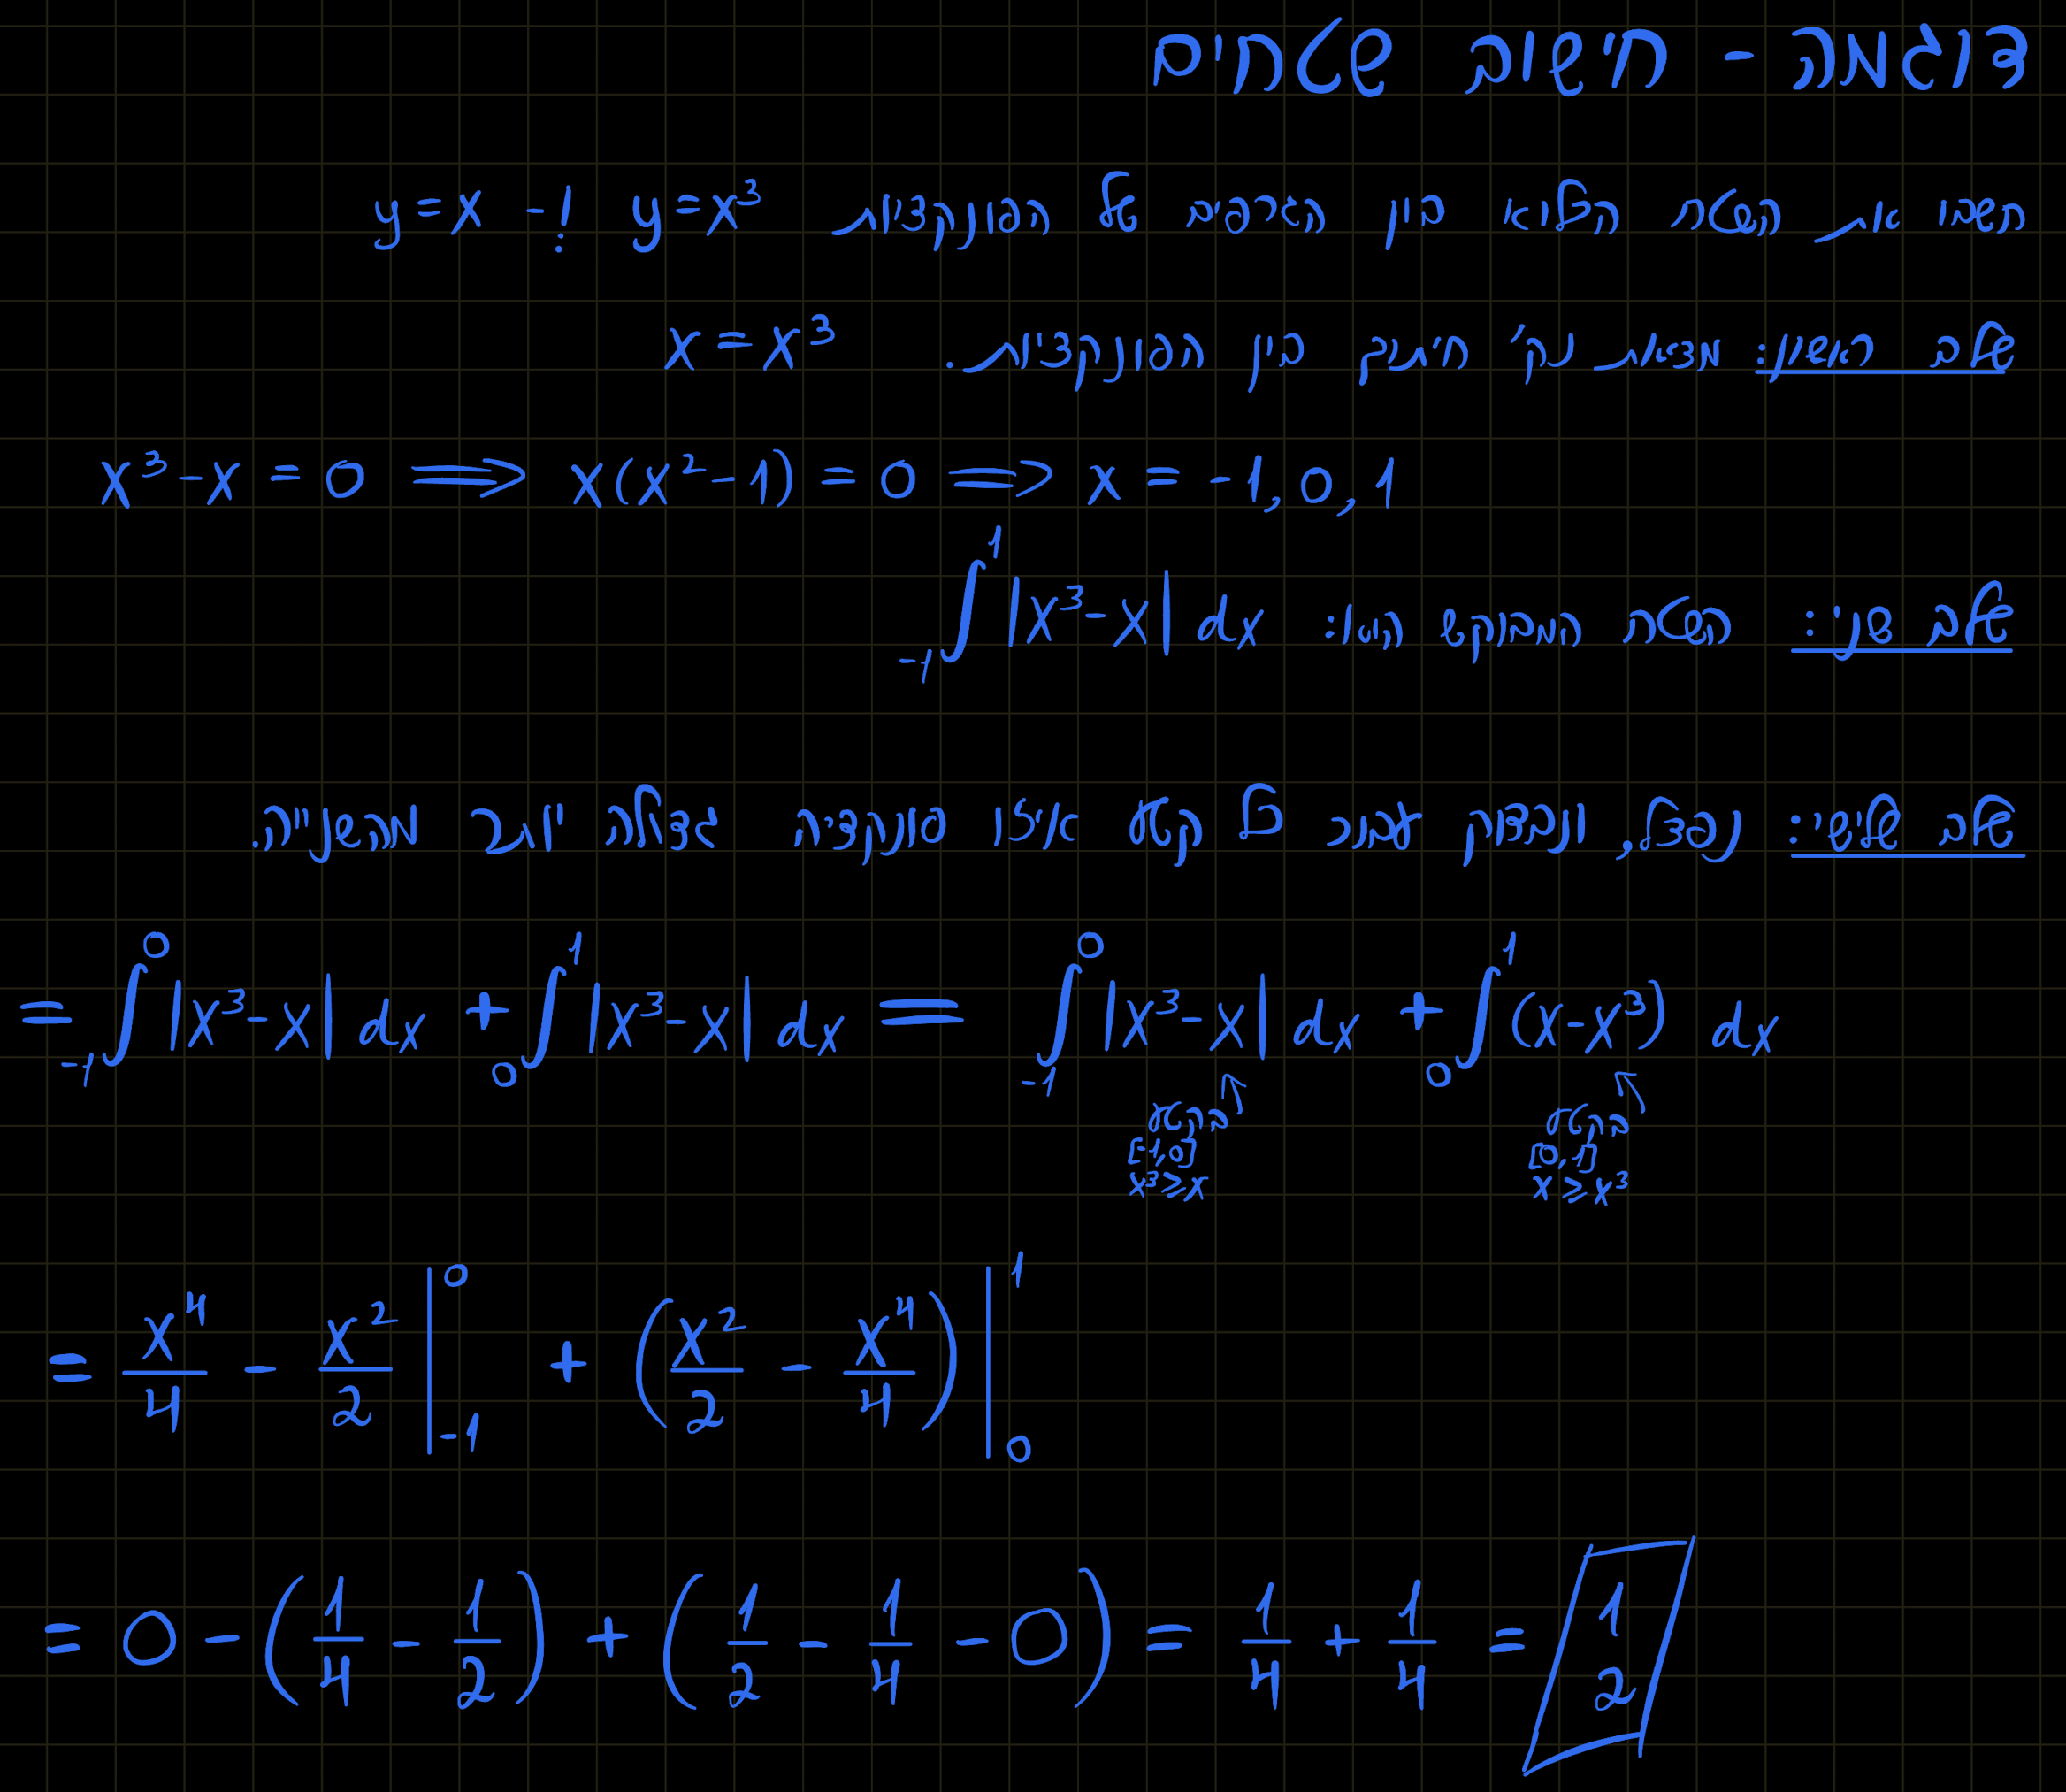 דוגמה - חישוב שטחים
חשבו את השטח הכלוא בין הגרפים של הפונקציות y=x³ ו- y=x
שלב ראשון: מציאת נק' חיתוך בין הפונקציות. x=x³
x³-x=0 ⟹ x(x²-1)=0 ⟹ x=-1,0,1
שלב שני: השטח המבוקש הוא: ∫₋₁¹ |x³-x| dx
שלב שלישי: נפצל, ונבדוק עבור כל קטע איזו פונקציה גדולה יותר מהשנייה.
= ∫₋₁⁰ |x³-x| dx + ∫₀¹ |x³-x| dx = ∫₋₁⁰ |x³-x| dx + ∫₀¹ (x-x³) dx
בקטע
[-1,0]
x³≥x
בקטע
[0,1]
x≥x³
= x⁴/4 - x²/2 |₋₁⁰ + (x²/2 - x⁴/4) |₀¹
= 0 - (1/4 - 1/2) + (1/2 - 1/4 - 0) = 1/4 + 1/4 = 1/2